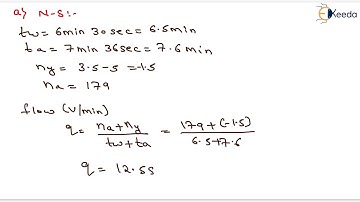 Ekeeda
a) N-S:-
tw = 6min 30sec = 6.5min
ta = 7min 36sec = 7.6min
ny = 3.5-5 = -1.5
na = 179
flow (V/min)
q = na+ny / tw+ta = 179+(-1.5) / 6.5+7.6
q = 12.58